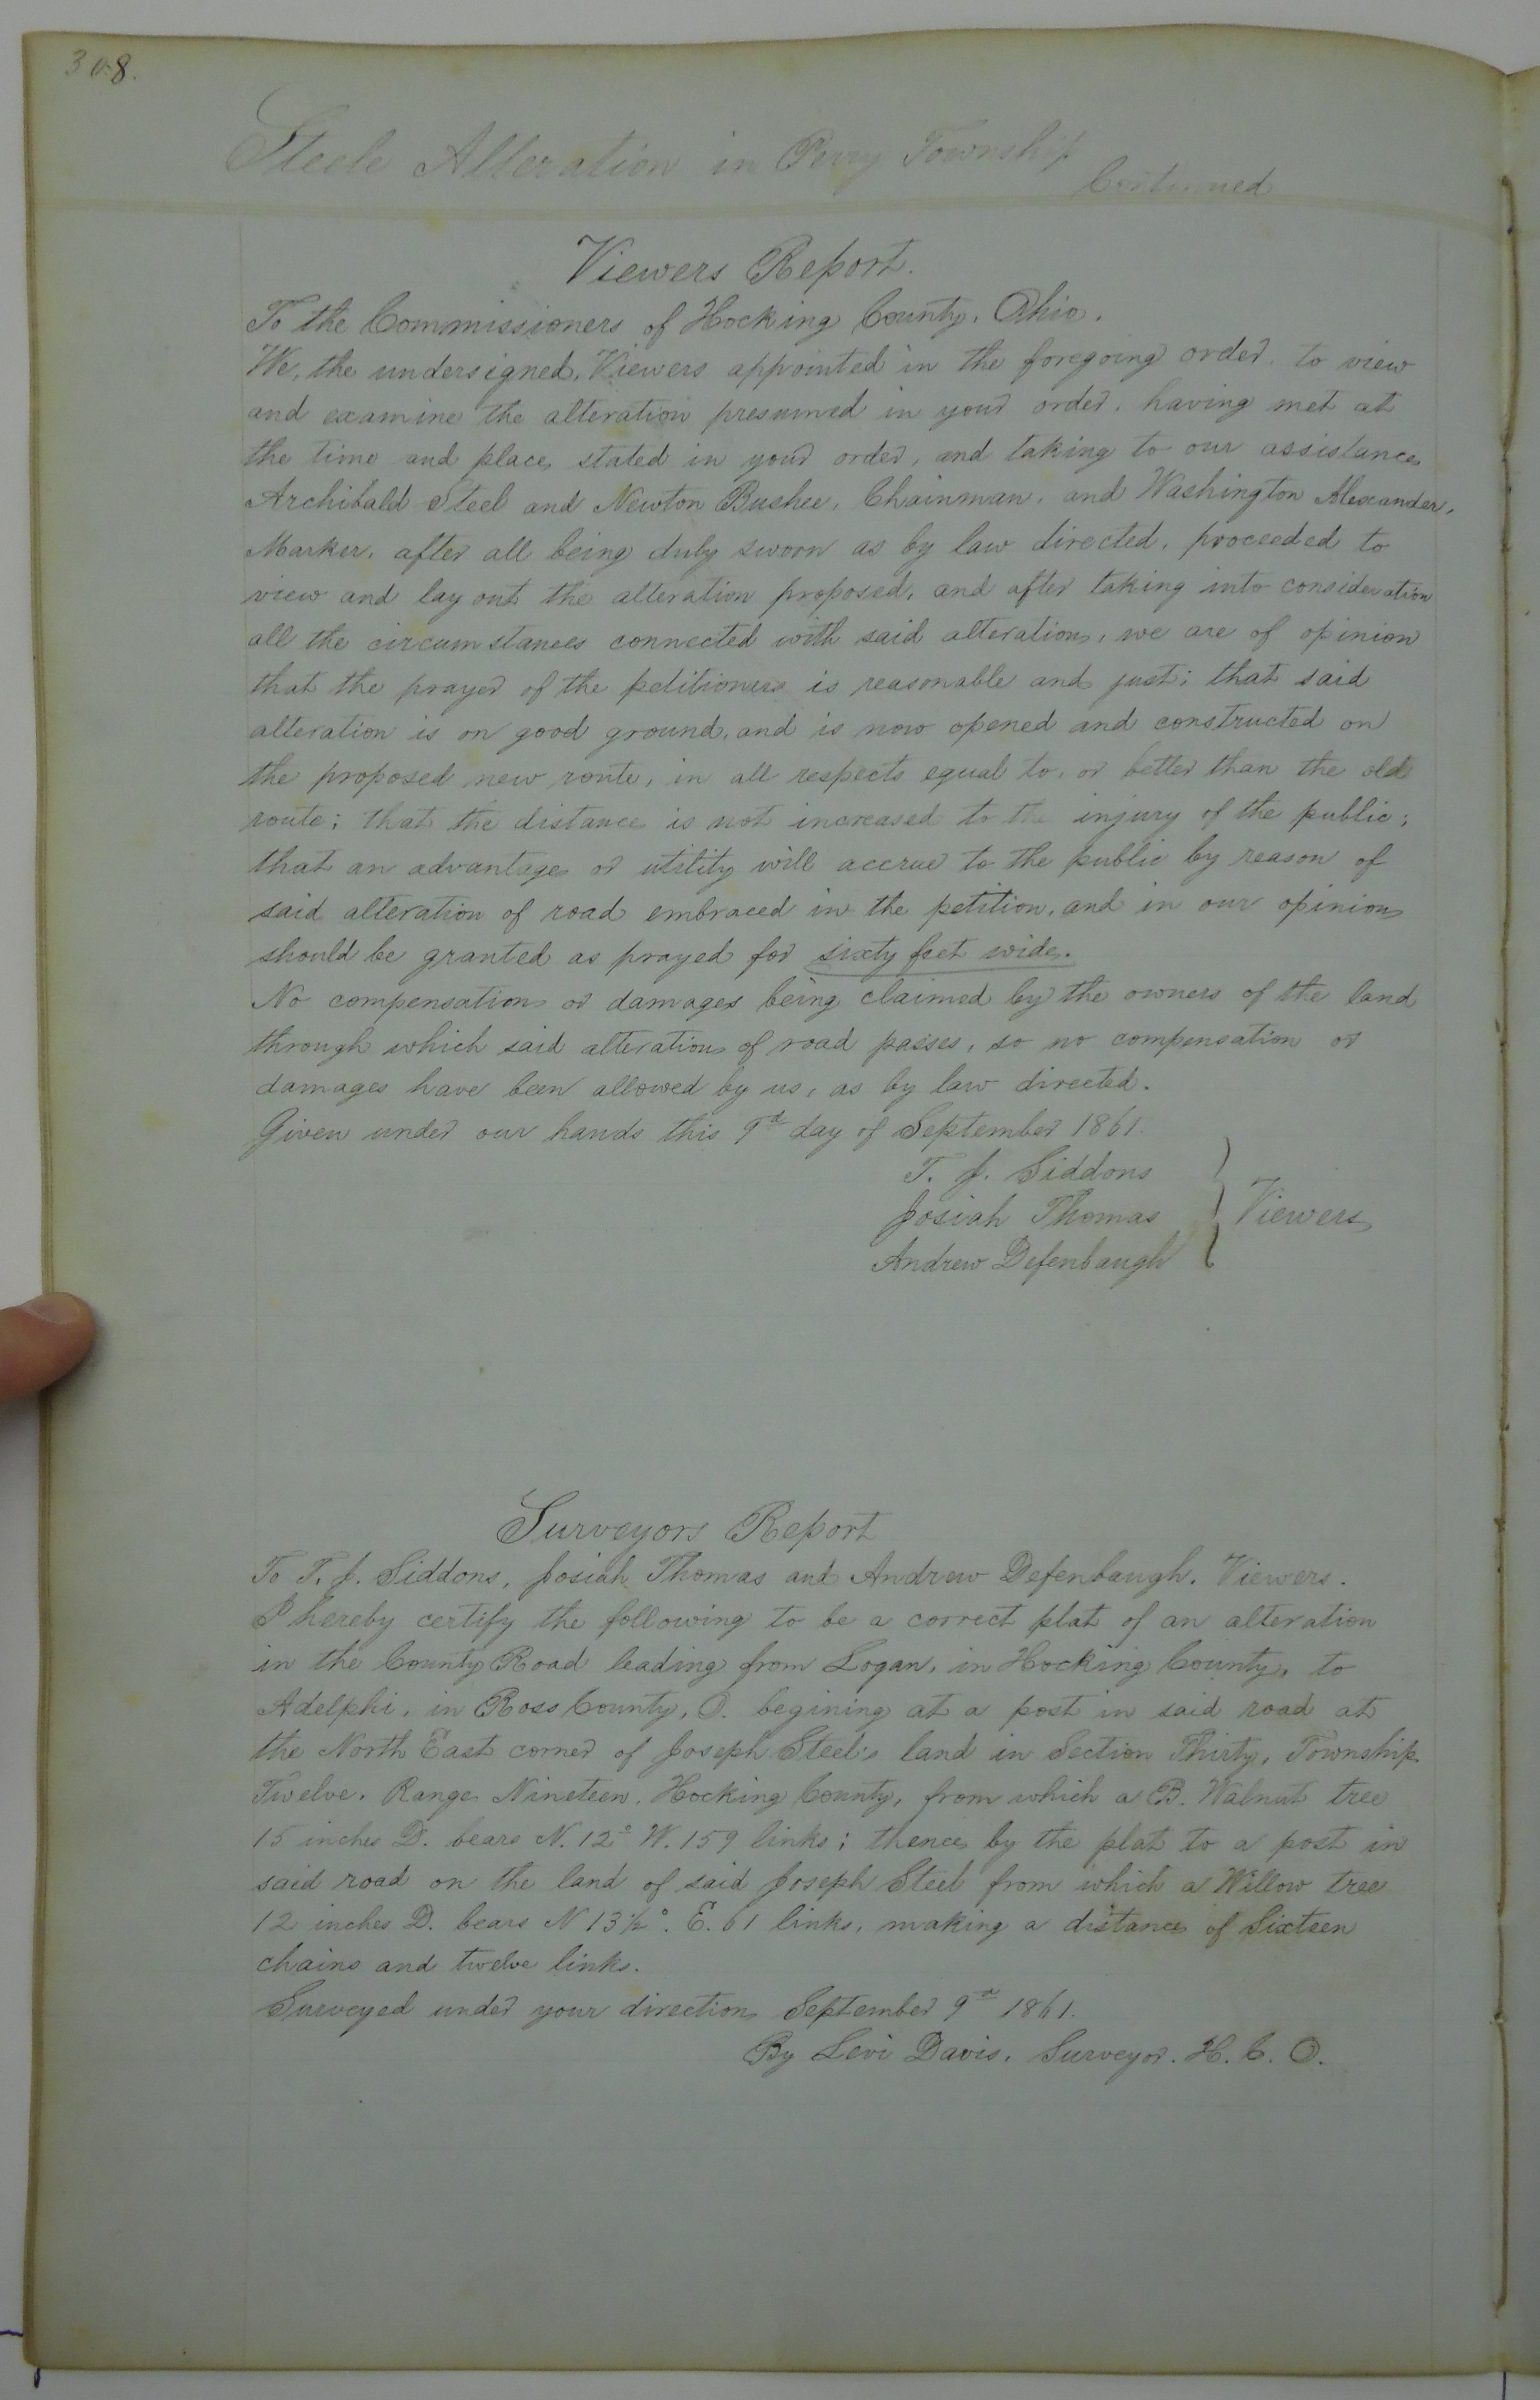 308.
Steele Alteration in Perry Township
Continued
Viewers Report.
To the Commissioners of Hocking County, Ohio.
We, the undersigned, Viewers appointed in the foregoing order to view
and examine the alteration presumed in your order, having met at
the time and place stated in your order, and taking to our assistance
Archibald Steel and Newton Bushee, Chainman, and Washington Alexander,
Marker, after all being duly sworn as by law directed, proceeded to
view and lay out the alteration proposed, and after taking into consideration
all the circumstances connected with said alteration, we are of opinion
that the prayer of the petitioners is reasonable and just; that said
alteration is on good ground, and is now opened and constructed on
the proposed new route, in all respects equal to, or better than the old
route; that the distance is not increased to the injury of the public;
that an advantage or utility will accrue to the public by reason of
said alteration of road embraced in the petition, and in our opinion
should be granted as prayed for sixty feet wide.
No compensation or damages being claimed by the owners of the land
through which said alteration of road passes, so no compensation or
damages have been allowed by us, as by law directed.
Given under our hands this 9th day of September 1861.
T. J. Siddons
Josiah Thomas } Viewers
Andrew Defenbaugh
Surveyors Report
To T. J. Siddons, Josiah Thomas and Andrew Defenbaugh, Viewers.
I hereby certify the following to be a correct plat of an alteration
in the County Road leading from Logan, in Hocking County, to
Adelphi, in Ross County, O. begining at a post in said road at
the North East corner of Joseph Steel's land in Section Thirty, Township
Twelve, Range Nineteen, Hocking County, from which a B. Walnut tree
15 inches D. bears N. 12° W. 159 links; thence by the plat to a post in
said road on the land of said Joseph Steel from which a Willow tree
12 inches D. bears N 13½° E. 61 links, making a distance of Sixteen
chains and twelve links.
Surveyed under your direction September 9th 1861.
By Levi Davis, Surveyor. H. C. O.